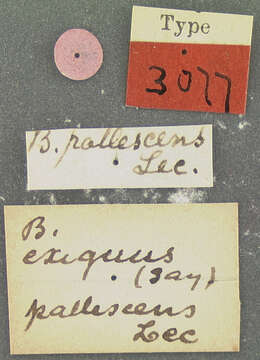 Type
3077
B. pallescens
Lec.
B.
exiguus
(Say)
pallescens
Lec